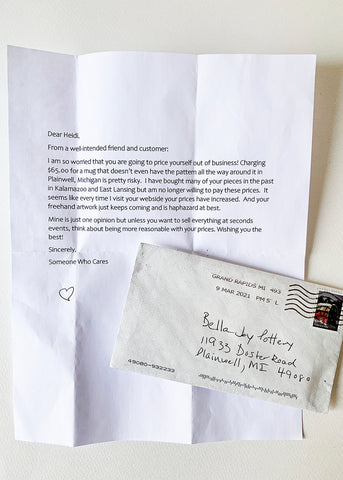 Dear Heidi,
From a well-intended friend and customer:
I am so worried that you are going to price yourself out of business! Charging
$65.00 for a mug that doesn't even have the pattern all the way around it in
Plainwell, Michigan is pretty risky. I have bought many of your pieces in the past
in Kalamazoo and East Lansing but am no longer willing to pay these prices. It
seems like every time I visit your webside your prices have increased. And your
freehand artwork just keeps coming and is haphazard at best.
Mine is just one opinion but unless you want to sell everything at seconds
events, think about being more reasonable with your prices. Wishing you the
best!
Sincerely,
Someone Who Cares
GRAND RAPIDS MI 493
9 MAR 2021 PM 5 L
Bella Joy Pottery
11933 Doster Road
Plainwell, MI 49080
49080-932233